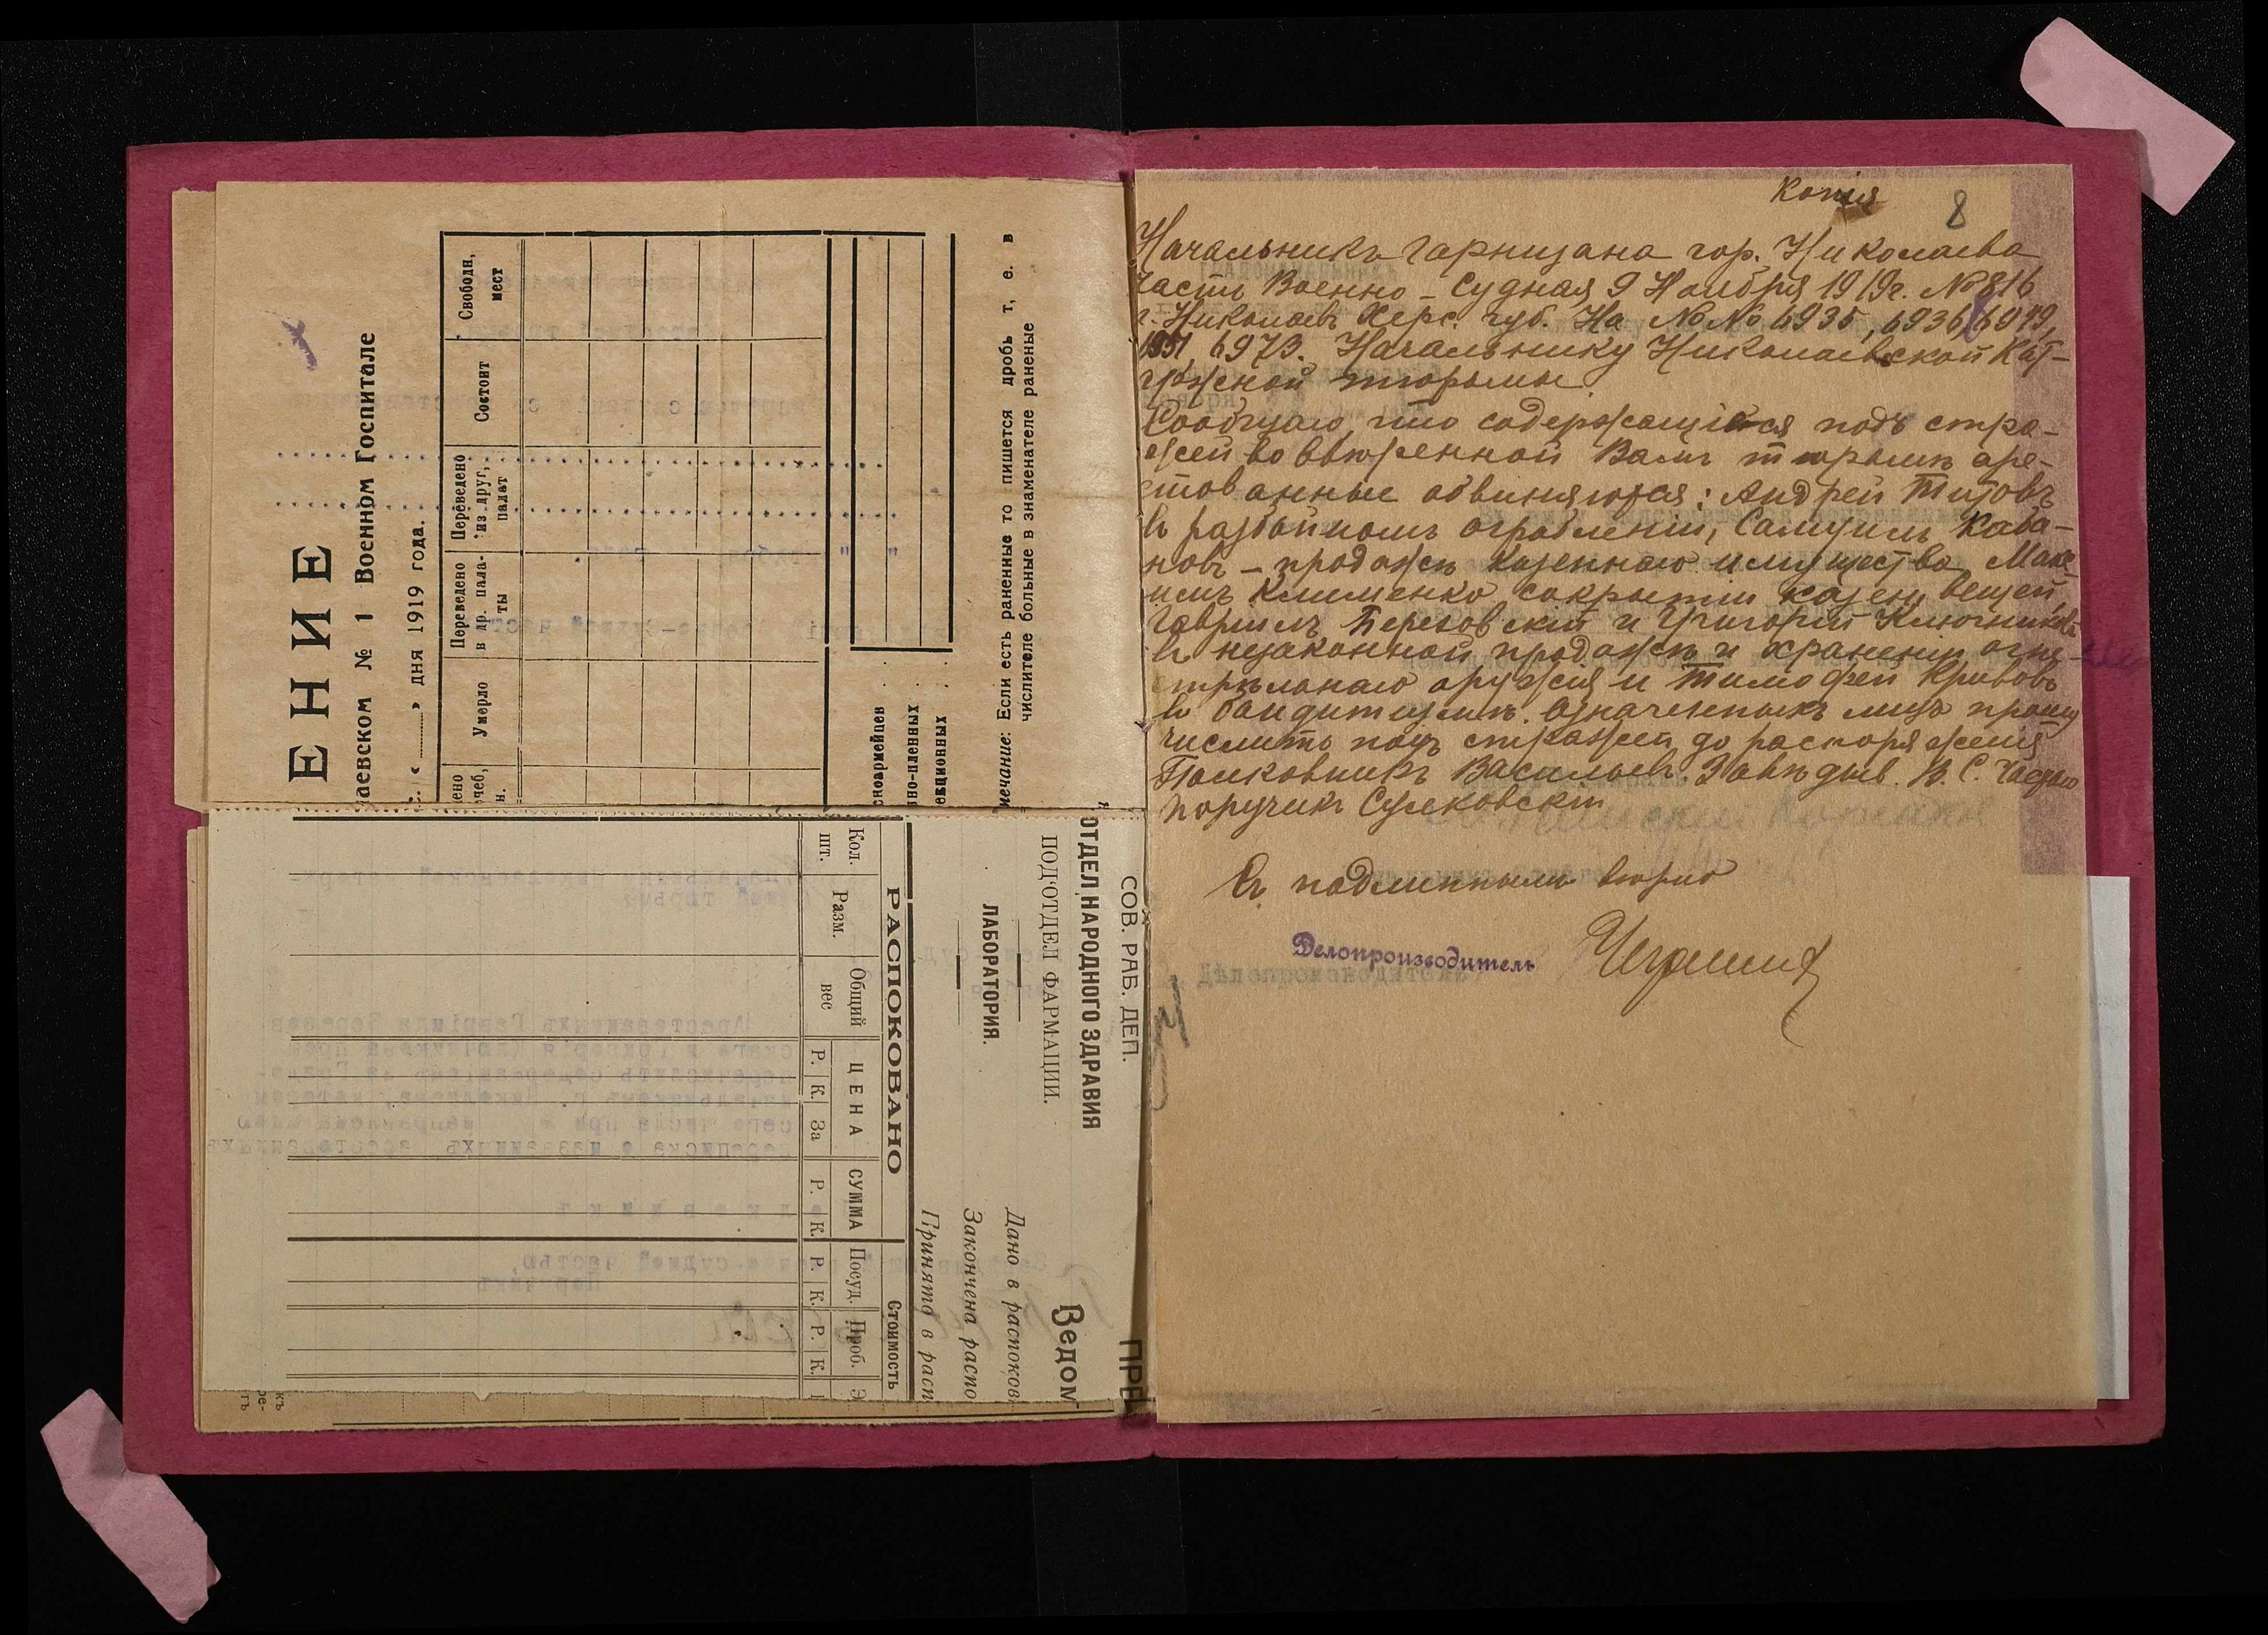 ЕНИЕ
аевском № 1 Военном Госпитале
„ “ дня 1919 года.
ено
чеб,
н.
Умерло
Переведено
в др. пала-
ты
Переведено
из друг,
палат
Состоит
Свободн,
мест
сноармейцев
нно-пленных
екционных
мечание: Если есть раненные то пишется дробь т, е. в
числителе больные в знаменателе раненые
СОВ. РАБ. ДЕП.
ПРЕ
ОТДЕЛ НАРОДНОГО ЗДРАВИЯ
ПОД'ОТДЕЛ ФАРМАЦИИ.
Ведом
ЛАБОРАТОРИЯ.
Дано в распоков
Закончена распо
Принято в расп
РАСПОКОВАНО
Стоимость
Кол.
шт.
Разм.
Общий
вес
ЦЕНА
СУММА
Посуд.
Проб.
Э
Р. К. За Р. К. Р. К. Р. К.
Копія
8
Начальникъ Гарнизона гор. Николаева
часть Военно-Судная 9 Ноября 1919г. № 816
г. Николаевъ Херс. губ. На №№ 6935, 6936, 6949,
6951, 6973. Начальнику Николаевской Кат-
оржной тюрьмы.
Сообщаю, что содержащіеся подъ стра-
жей во ввѣренной Вамъ тюрьмѣ аре-
стованные обвиняются: Андрей Титовъ
въ разбойномъ ограбленіи, Самуилъ Каба-
новъ – продажѣ казеннаго имущества, Мак-
имъ Клименко сокрытіи казен. вещей,
Гавріилъ Березовскій и Григорій Ключниковъ
въ незаконной продажѣ и храненіи огне-
стрѣльнаго оружія и Тимофей Кривовъ
въ бандитизмѣ. Означенныхъ лицъ прошу
числить подъ стражей до распоряженія
Полковникъ Васильевъ. Завѣдыв. В. С. Частью
поручикъ Сулковскій
Съ подлиннымъ вѣрно
Делопроизводитель